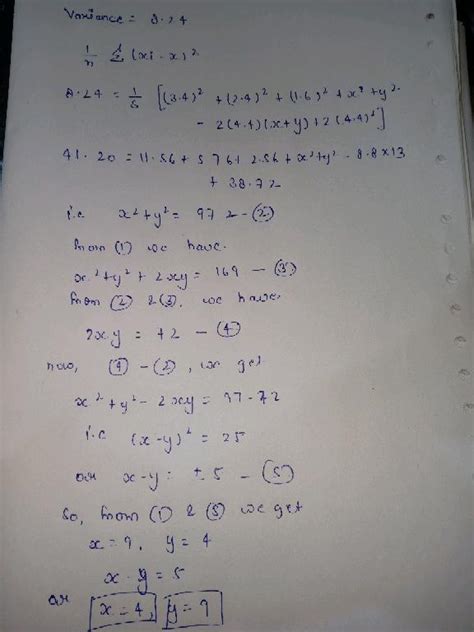 Variance = 8.24
1/n Σ (xi - x)²
8.24 = 1/5 [(3.4)² + (2.4)² + (1.6)² + x² + y²
- 2(4.4)(x+y) + 2(4.4)²]
41.20 = 11.56 + 5.76 + 2.56 + x² + y² - 8.8×13
+ 38.72
i.e x² + y² = 97 - (2)
from (1) we have.
x² + y² + 2xy = 169 - (3)
from (2) & (3), we have.
2xy = 72 - (4)
now, (2) - (4), we get
x² + y² - 2xy = 97-72
i.e (x-y)² = 25
or x-y = ±5 - (5)
So, from (1) & (5) we get
x = 9, y = 4
x - y = 5
or x = 4, y = 9